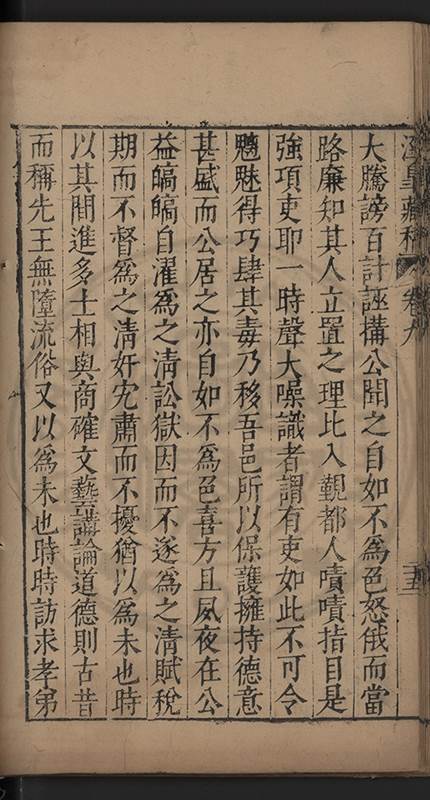 漪皇藏稿 卷九 十五
大騰謗百計誣搆公聞之自如不為邑怒俄而當
路廉知其人立置之理比入覲都人嘖嘖指目是
強項吏耶一時聲大噪識者謂有吏如此不可令
魑魅得巧肆其毒乃移吾邑所以保護擁持德意
甚盛而公居之亦自如不為邑喜方且夙夜在公
益皜皜自濯為之清訟獄因而不逐為之清賦稅
期而不督為之清奸宄肅而不擾猶以為未也時
以其間進多士相與商確文藝講論道德則古昔
而稱先王無墮流俗又以為未也時時訪求孝弟